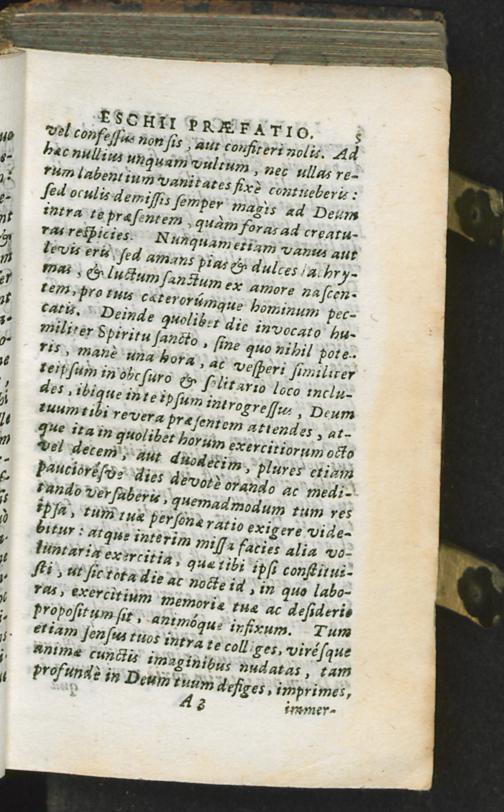 ESCHII PRÆFATIO. 5
vel confessus non sis, aut confiteri nolis. Ad
hæc nullius unquam vultum, nec ullas re-
rum labentium vanitates fixè contueberis:
sed oculis demissis semper magis ad Deum
intra te præsentem, quàm foras ad creatu-
ras respicies. Nunquam etiam vanus aut
levis eris, sed amans pias & dulces lachry-
mas, & luctum sanctum ex amore nascen-
tem, pro tuis cæterorúmque hominum pec-
catis. Deinde quolibet die invocato hu-
militer Spiritu sancto, sine quo nihil pote-
ris, manè una hora, ac vesperi similiter
teipsum in obscuro & solitario loco inclu-
des, ibique in te ipsum introgressus, Deum
tuum tibi revera præsentem attendes, at-
que ita in quolibet horum exercitiorum octo
vel decem, aut duodecim, plures etiam
paucioresve dies devotè orando ac medi-
tando versaberis, quemadmodum tum res
ipsa, tum tuæ personæ ratio exigere vide-
bitur: atque interim missa facies alia vo-
luntaria exercitia, quæ tibi ipsi constitui-
sti, ut sic tota die ac nocte id, in quo labo-
ras, exercitium memoriæ tuæ ac desiderio
propositum sit, animóque infixum. Tum
etiam sensus tuos intra te colliges, virésque
animæ cunctis imaginibus nudatas, tam
profundè in Deum tuum defiges, imprimes,
A 3 immer-